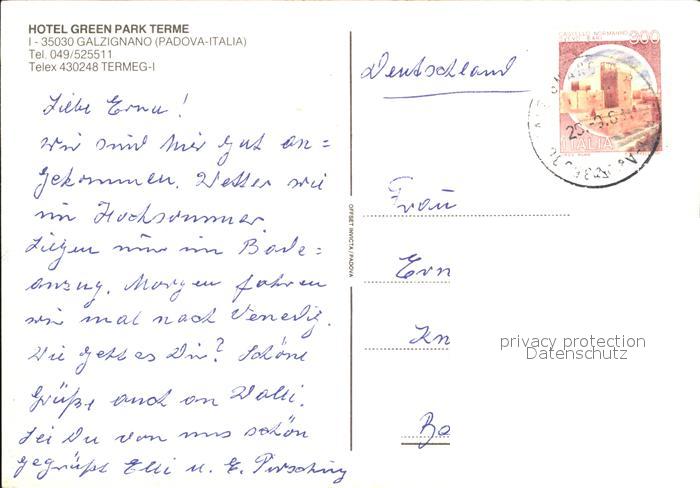 HOTEL GREEN PARK TERME
I - 35030 GALZIGNANO (PADOVA-ITALIA)
Tel. 049/525511
Telex 430248 TERMEG-I
Liebe Erna!
wir sind hier gut an=
gekommen. Wetter wie
im Hochsommer.
Liegen nur im Bade=
anzug. Morgen fahren
wir mal nach Venedig.
Wie geht es Dir? Schöne
Grüße auch an Walli.
Sei Du von uns schön
gegrüßt Elli u. E.
OFFSET INVICTA / PADOVA
Deutschland
CASTELLO NORMANNO
300
ITALIA
Frau
Ern
Kn
Ba
privacy protection
Datenschutz